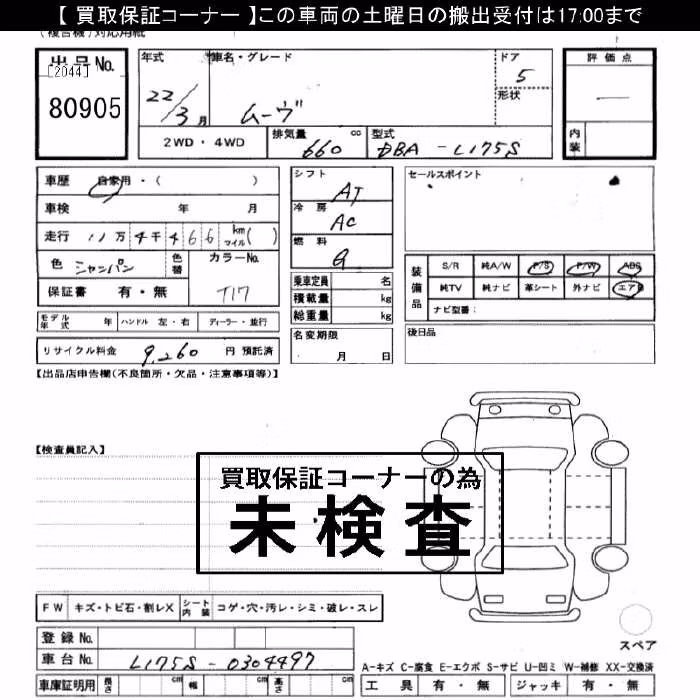 【 買取保証コーナー 】この車両の土曜日の搬出受付は17:00まで
(複合機)対応用紙
出品No.
[2044]
80905
年式
22/3月
車名・グレード
ムーヴ
ドア
5
形状
2WD・4WD
排気量
660 cc
型式
DBA - L175S
評価点
—
内装
車歴 自家用・( )
車検 年 月
走行 11万4千466 km マイル( )
色 シャンパン 色替 カラーNo.
T17
保証書 有・無
モデル年式 年 ハンドル 左・右 ディーラー・並行
リサイクル料金 9,260 円 預託済
シフト
AT
冷房
AC
燃料
G
乗車定員 名
積載量 kg
総重量 kg
名変期限
月 日
セールスポイント
装備品
S/R 純A/W P/S P/W ABS
純TV 純ナビ 革シート 外ナビ エアB
ナビ型番:
後日品
【出品店申告欄(不良箇所・欠品・注意事項等)】
【検査員記入】
買取保証コーナーの為
未検査
FW キズ・トビ石・割レX シート内装 コゲ・穴・汚レ・シミ・破レ・スレ
登録No.
車台No. L175S - 0304497
車庫証明用 長さ cm 幅 cm 高さ cm
スペア
A-キズ C-腐食 E-エクボ S-サビ U-凹ミ W-補修 XX-交換済
工具 有・無 ジャッキ 有・無